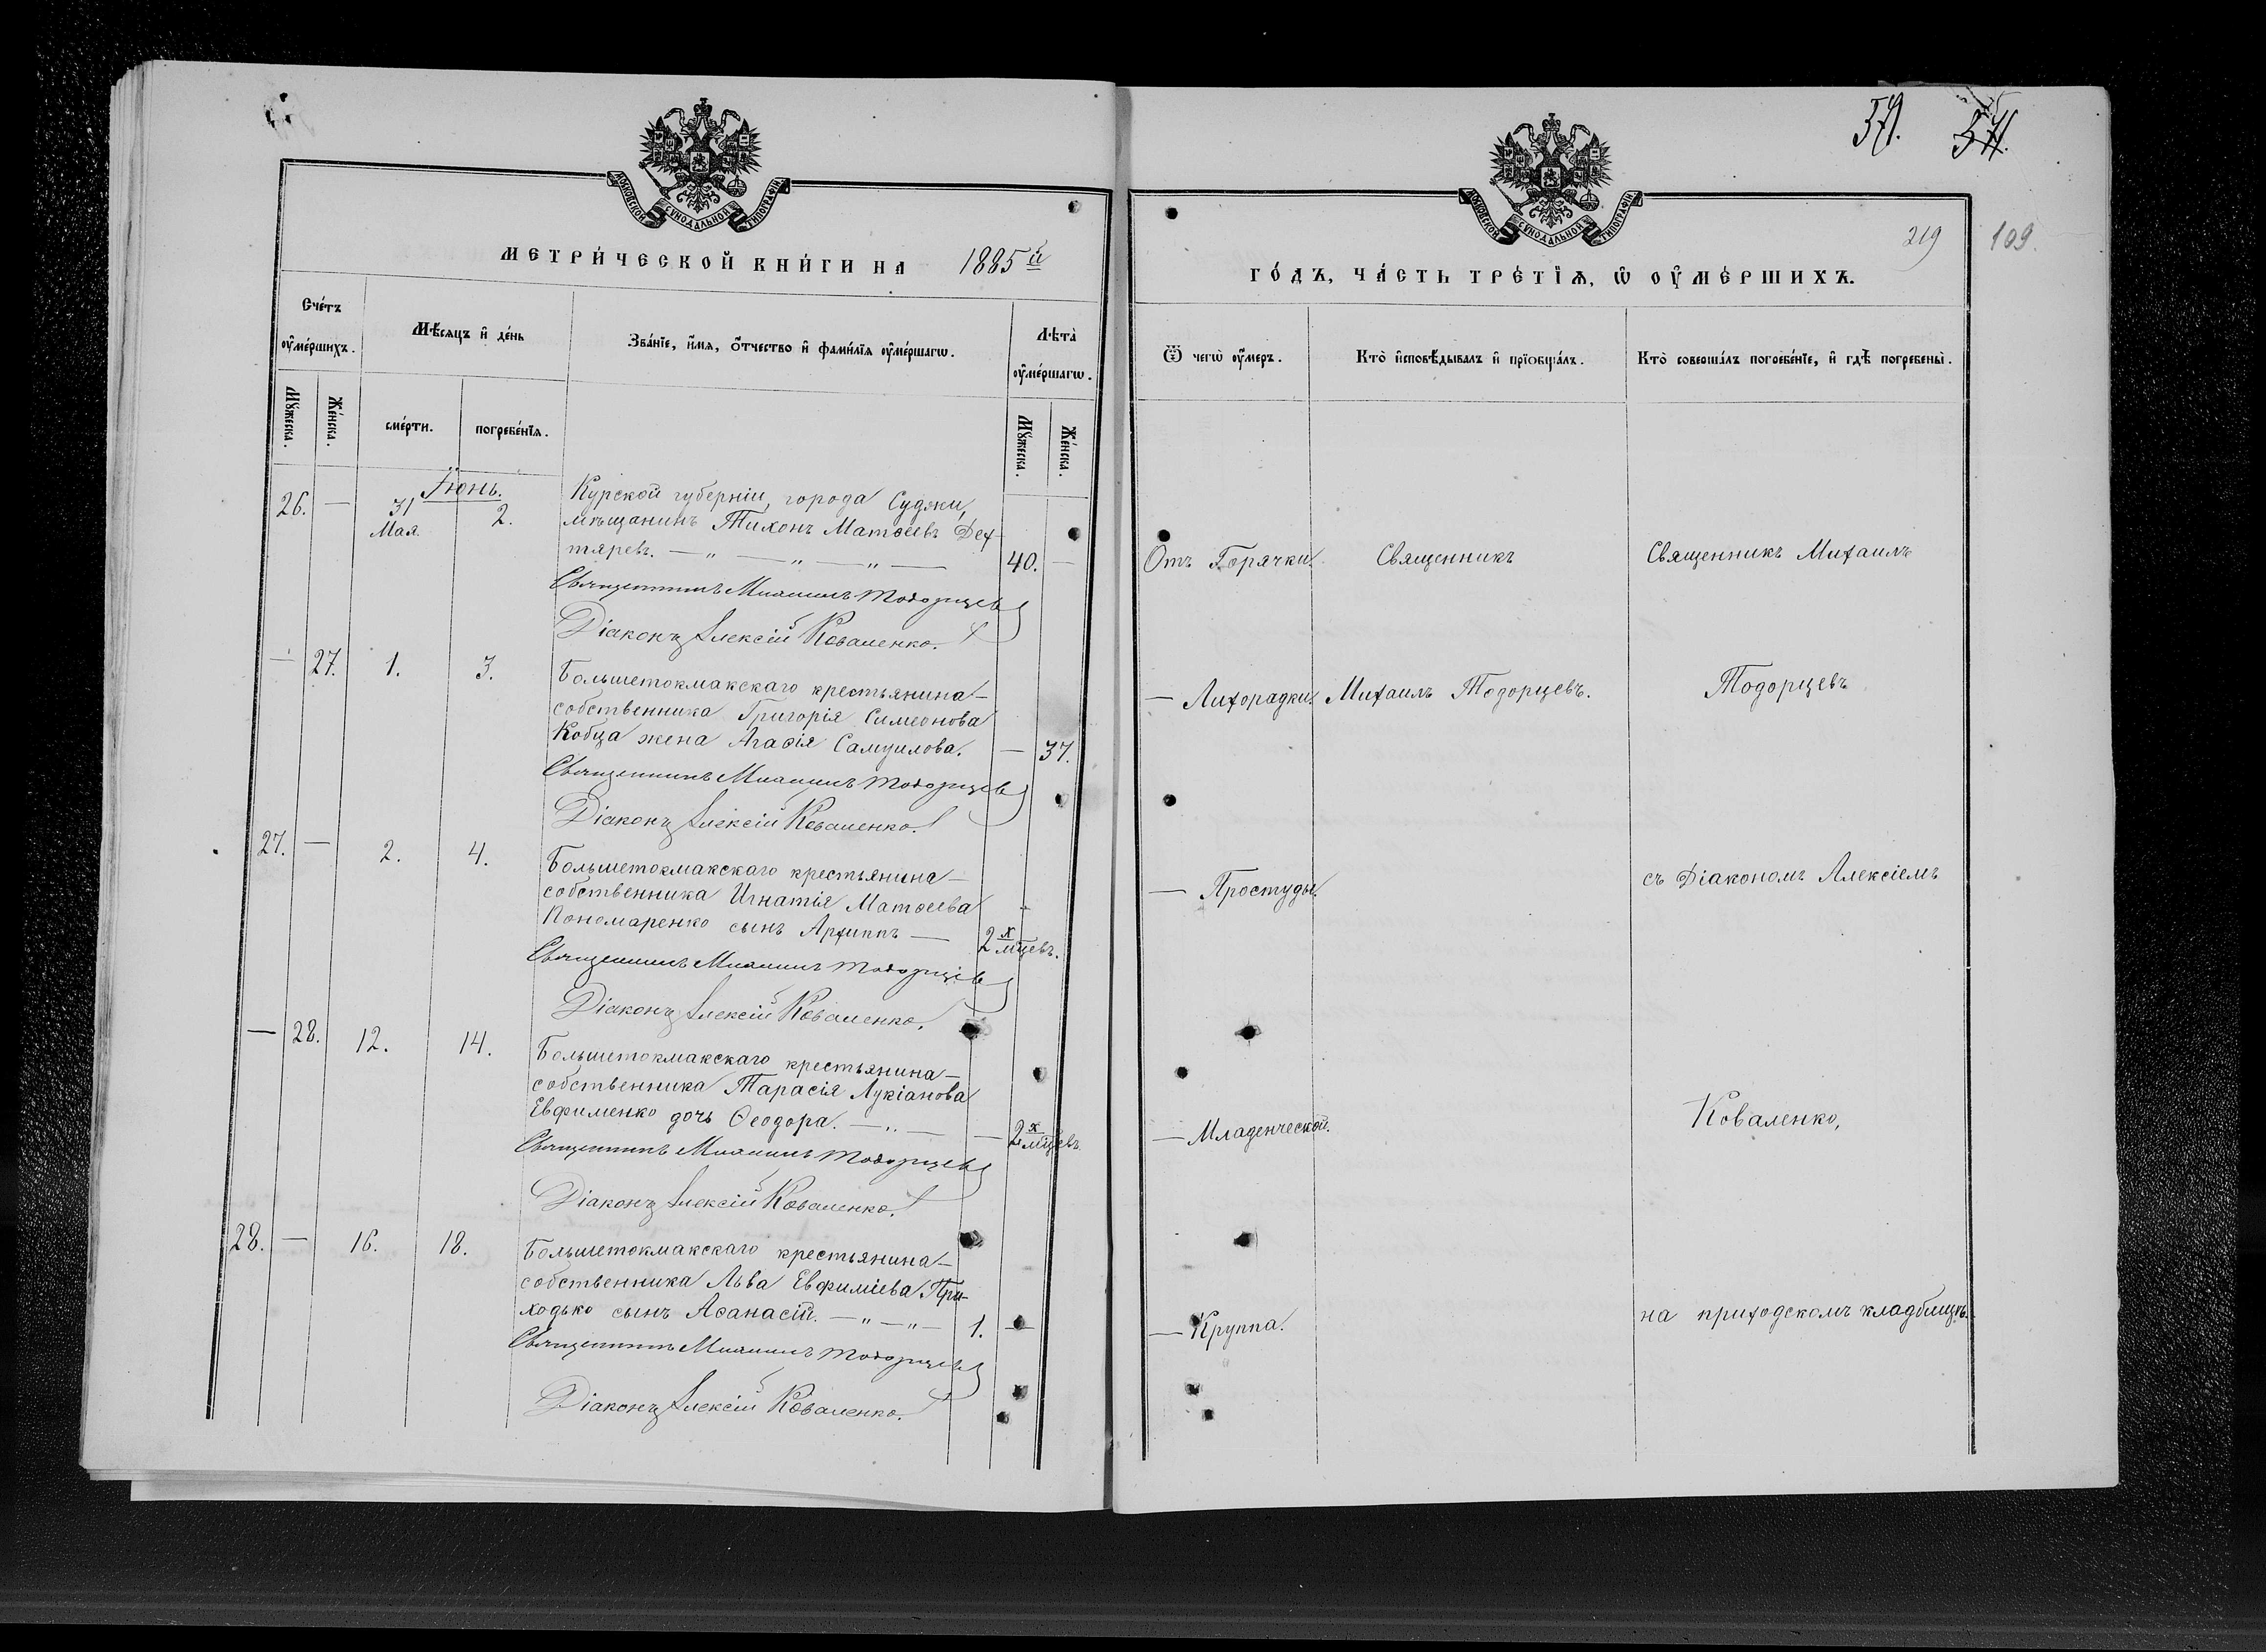 МОСКОВСКОЙ СѴНОДАЛЬНОЙ ТИПОГРАФІИ
МЕТРИ́ЧЕСКОЙ КНИ́ГИ НА 1885й
Сче́тъ ᲂу҆ме́ршихъ.
Мѣ́сяцъ и҆ де́нь
Зва́нїе, и҆́мя, ѻ҆́тчество и҆ фами́лїя ᲂу҆ме́ршагѡ.
Лѣ́та ᲂу҆ме́ршагѡ.
Мꙋ́жеска.
Же́нска.
сме́рти.
погребе́нїя.
Мꙋ́жеска.
Же́нска.
Іюнь.
26. — 31 Мая. 2.
Курской губерніи, города Суджи,
мѣщанинъ Тихонъ Матѳеевъ Дех-
тяревъ. — „ — „ — „ — 40. —
Священникъ Михаилъ Тодорцевъ
Діаконъ Алексій Коваленко.
— 27. 1. 3.
Большетокмакскаго крестьянина-
собственника Григорія Симеонова
Кобца жена Агаѳія Самуилова. — 37.
Священникъ Михаилъ Тодорцевъ
Діаконъ Алексій Коваленко.
27. — 2. 4.
Большетокмакскаго крестьянина-
собственника Игнатія Матѳеева
Пономаренко сынъ Архиппъ — 2х мцевъ.
Священникъ Михаилъ Тодорцевъ
Діаконъ Алексій Коваленко.
— 28. 12. 14.
Большетокмакскаго крестьянина-
собственника Тарасія Лукіанова
Евфименко дочь Ѳеодора. — „ — — 2х мцевъ
Священникъ Михаилъ Тодорцевъ
Діаконъ Алексій Коваленко.
28. — 16. 18.
Большетокмакскаго крестьянина-
собственника Льва Евфиміева При-
ходько сынъ Аѳанасій. — „ — „ — 1. —
Священникъ Михаилъ Тодорцевъ
Діаконъ Алексій Коваленко.
МОСКОВСКОЙ СѴНОДАЛЬНОЙ ТИПОГРАФІИ
219 109.
ГО́ДЪ, ЧА́СТЬ ТРЕ́ТЇѦ, Ѡ҆ ОУ҆МЕ́РШИХЪ.
Ѿ чегѡ̀ ᲂу҆́меръ.
Кто̀ и҆сповѣ́дывалъ и҆ прїѻбща́лъ.
Кто̀ соверша́лъ погребе́нїе, и҆ гдѣ̀ погребены̀.
Отъ Горячки. Священникъ Священникъ Михаилъ
— Лихорадки. Михаилъ Тодорцевъ. Тодорцевъ
— Простуды. съ Діакономъ Алексіемъ
— Младенческой. Коваленко,
— Круппа. на приходскомъ кладбищѣ.